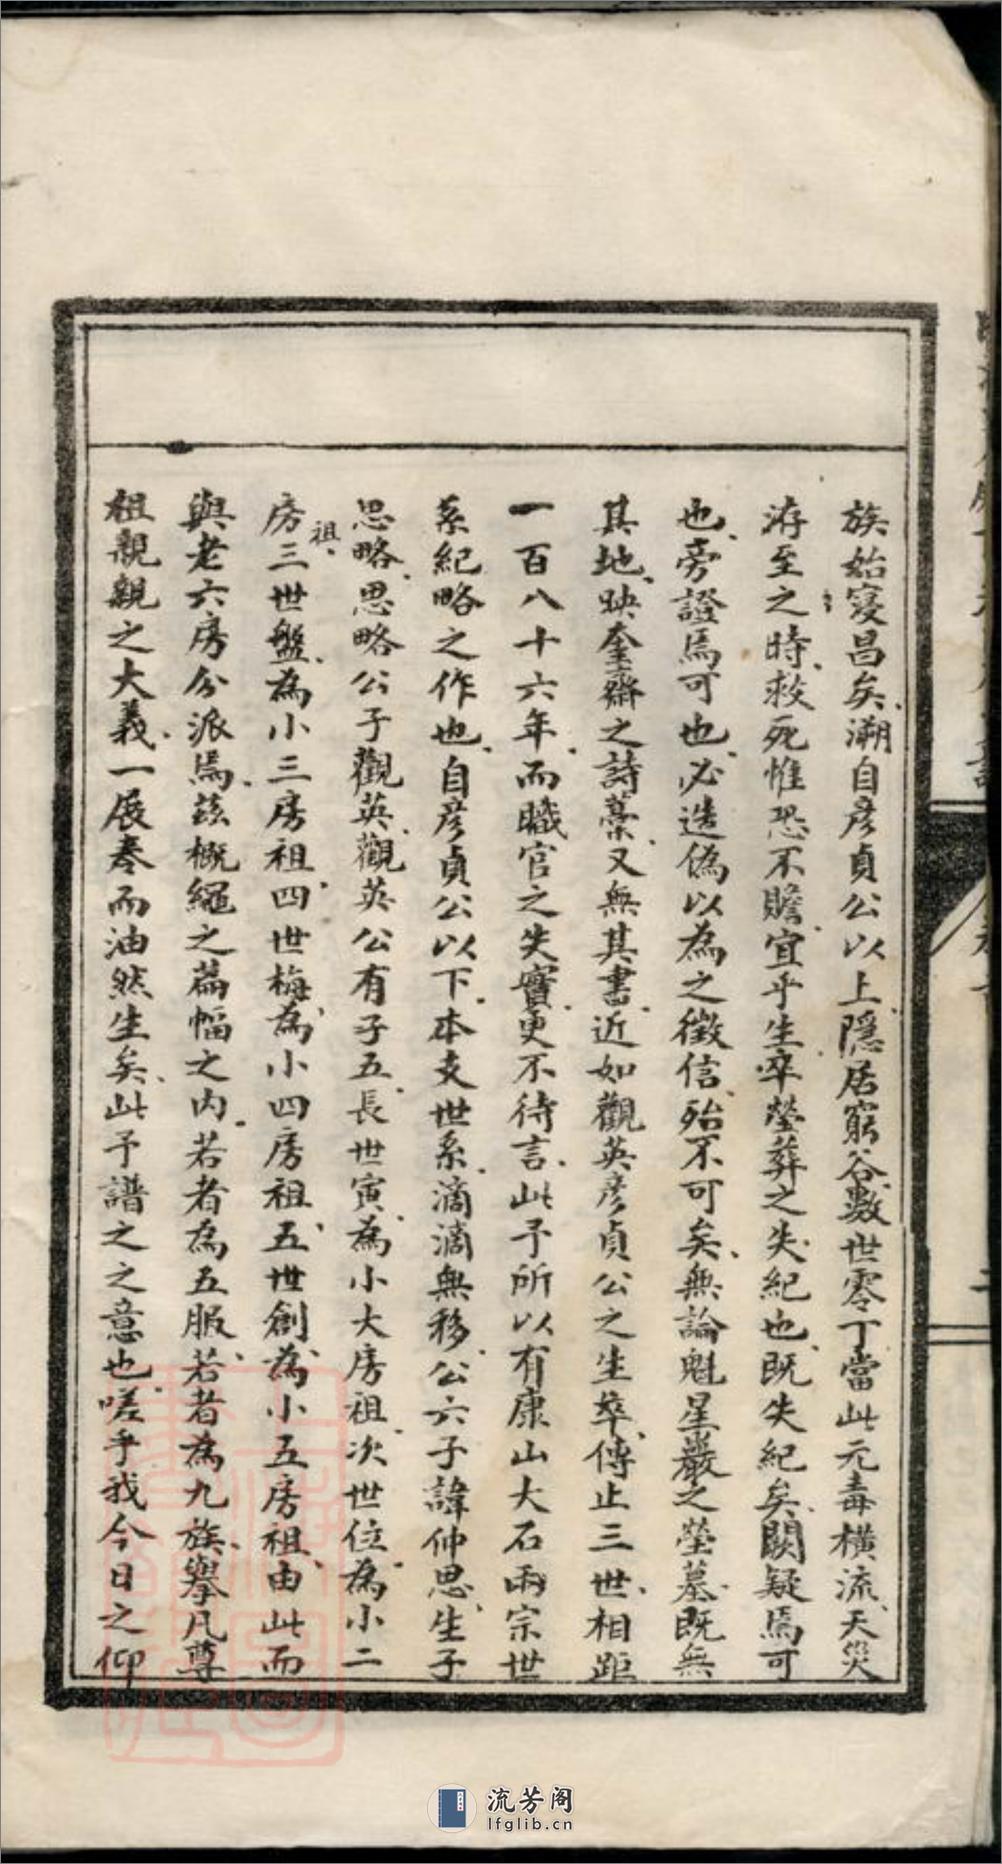 族始寖昌矣溯自彥貞公以上隱居窮谷數世零丁當此元毒橫流天災
洊至之時救死惟恐不贍宜乎生卒塋葬之失紀也既失紀矣闕疑焉可
也旁證焉可也必造偽以為之徵信殆不可矣無論魁星巖之塋墓既無
其地映奎齋之詩藁又無其書近如觀英彥貞公之生卒傳止三世相距
一百八十六年而職官之失實更不待言此予所以有康山大石兩宗世
系紀略之作也自彥貞公以下本支世系滴滴無移公六子諱仲思生子
思略思略公子觀英觀英公有子五長世寅為小大房祖次世位為小二
房祖三世盤為小三房祖四世梅為小四房祖五世創為小五房祖由此而
與老六房分派焉茲概繩之篇幅之內若者為五服若者為九族舉凡尊
祖親親之大義一展卷而油然生矣此予譜之之意也嗟乎我今日之仰
流芳阁
lfglib.cn